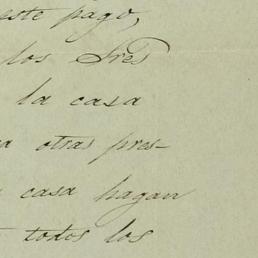 este pago,
los Sres
la casa
otras pres-
casa hagan
todos los